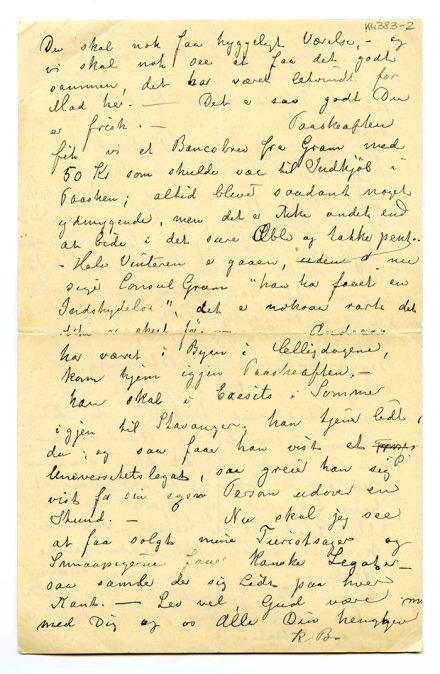 K4383-2
Du skal nok faa hyggeligt Værelse, – og
vi skal nok see at faa det godt
sammen, det har været letvindt for
Mad her. — Det er saa godt Du
er frisk. — Paaskeaften
fik vi et Bancobrev fra Gram med
50 Kr som skulde væe til Indkjøb i
Paasken; altid blevet saadant noget
ydmygende, men det er ikke andet end
at bide i det sure Æble og takke pent. –
– Hele Vinteren er gaaen, nu
sige Consul Gram "han har faaet en
Indskydelse", det er noksaa rart det
er skeet før —
har været i Byen i Helligdagene,
kom hjem igjen Paaskeaften. –
han skal i Sommer
igjen til Stavanger. han tjene lidt
da; og saa faar han vist et
Universitetslegat, saa greie han sig
vist for sin egen Person udover en
Stund. — Nu skal jeg see
at faa solgt mine Turistsager og
Smaapigerne kanske Legater –
saa samle der sig Lidt paa hver
Kant. — Lev vel, Gud være
med Dig og os Alle Din hengivne
R. B.